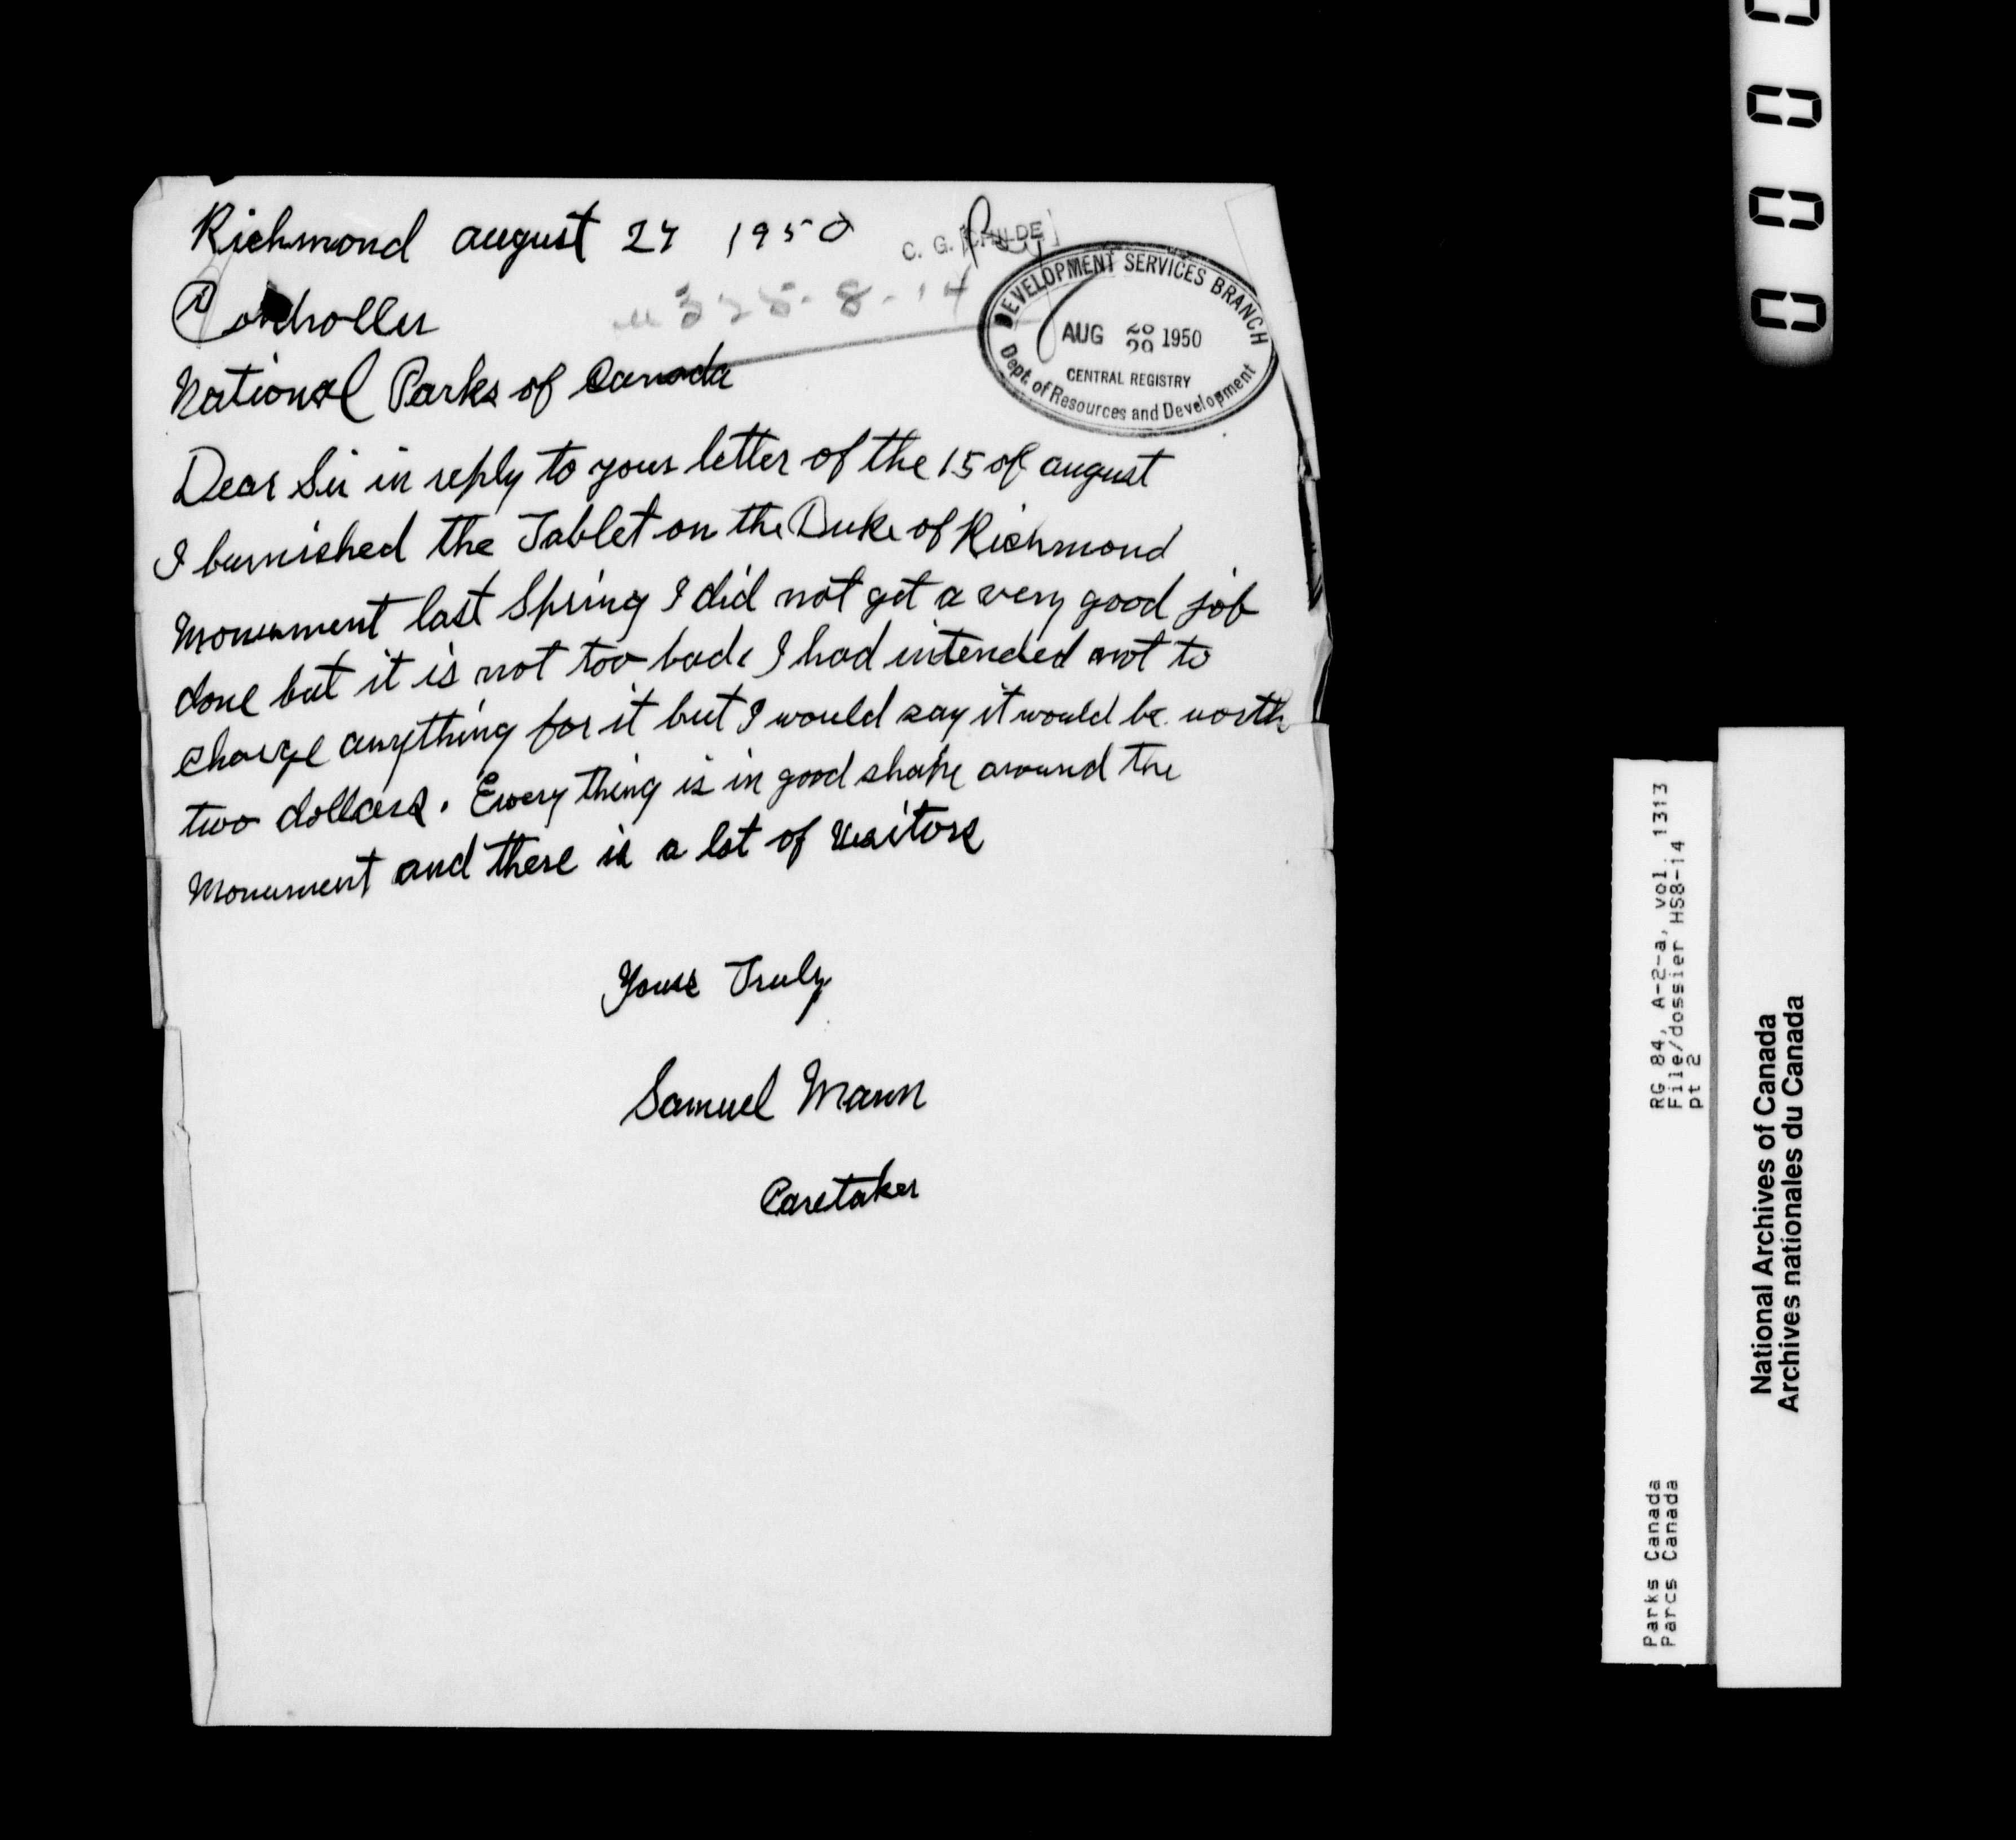 Richmond august 27 1950
C. G. CHILDE
Controller
328-8-14
National Parks of Canada
DEVELOPMENT SERVICES BRANCH
AUG 29 1950
CENTRAL REGISTRY
Dept. of Resources and Development
Dear Sir in reply to your letter of the 15 of august
I burnished the Tablet on the Duke of Richmond
Monument last Spring I did not get a very good job
done but it is not too bad. I had intended not to
charge anything for it but I would say it would be worth
two dollars. Every thing is in good shape around the
Monument and there is a lot of Visitors
Yours Truly
Samuel Mann
Caretaker
0 0 0 0
RG 84, A-2-a, vol. 1313
File/dossier HS8-14
pt 2
Parks Canada
Parcs Canada
National Archives of Canada
Archives nationales du Canada